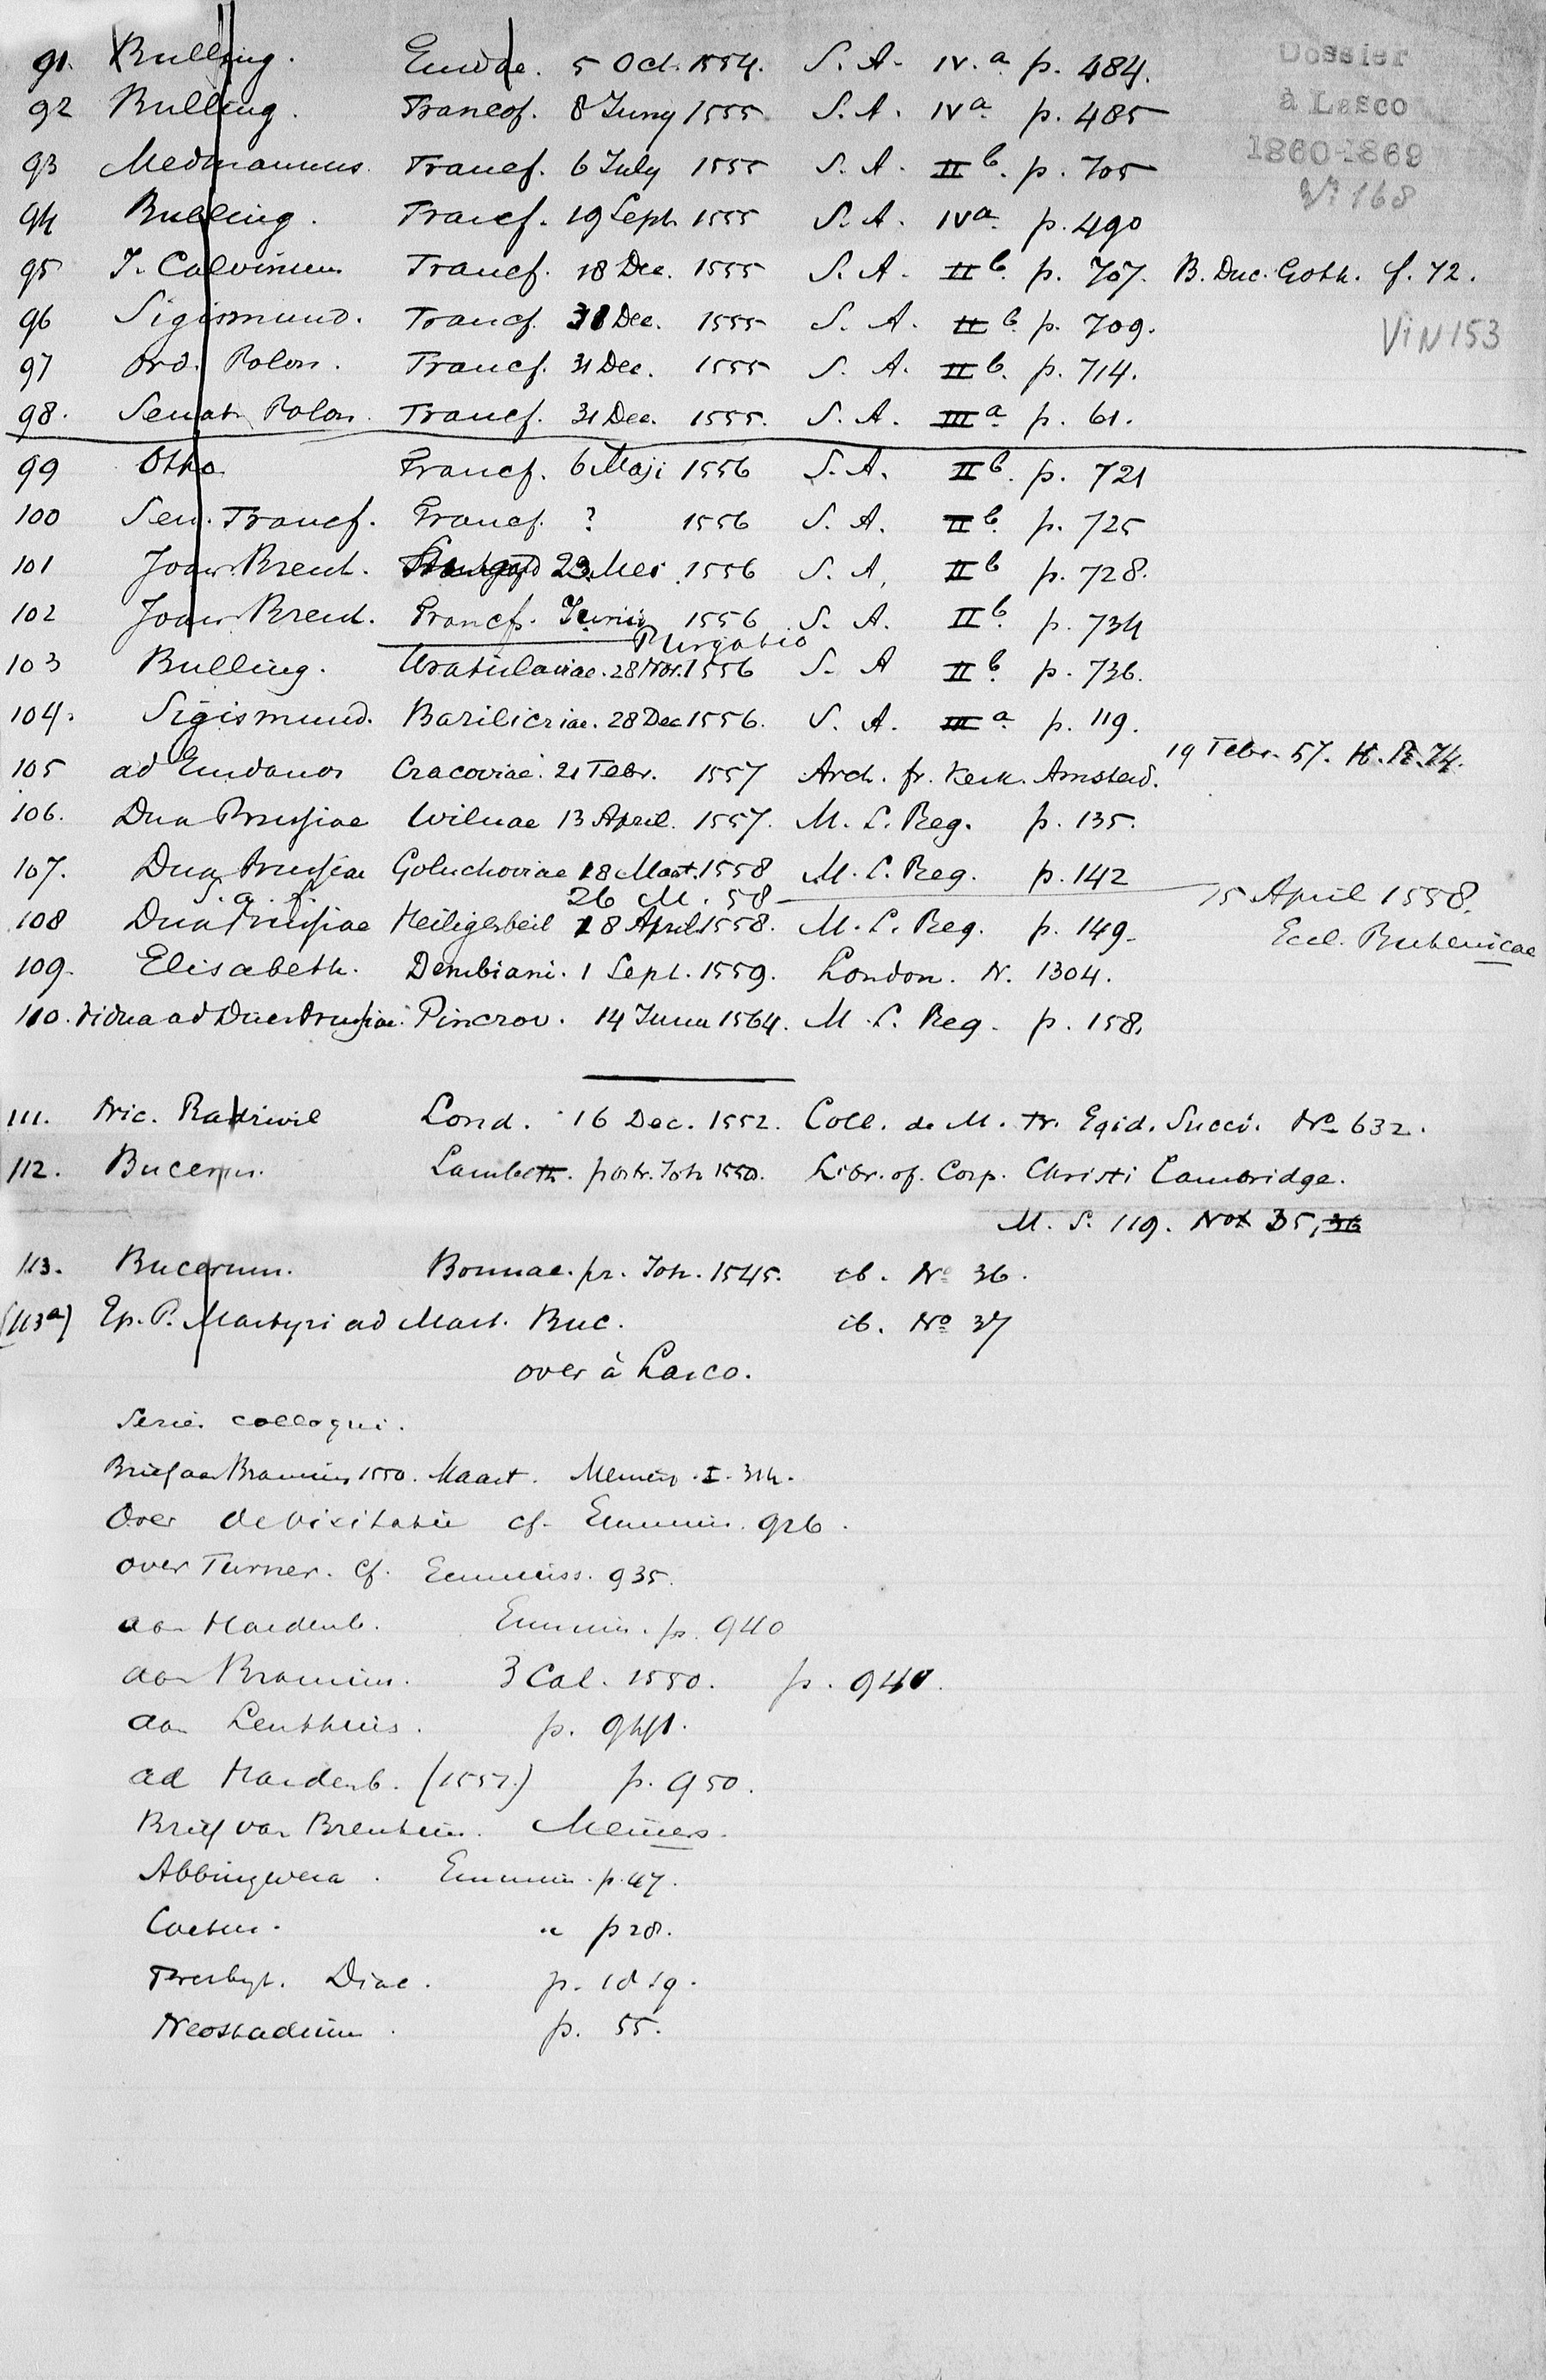 Dossier
à Lasco
1860-1869
No 168
91. Bulling. Emdae. 5 Oct. 1554. S. A. IV. a p. 484.
92 Bulling. Francof. 8 Juny 1555 S. A. IV a. p. 485
93 Medmannus. Francf. 6 July 1555 S. A. II b. p. 705
94 Bulling. Francf. 19 Sept. 1555 S. A. IV a. p. 490
95 J. Calvinum Francf. 18 Dec. 1555 S. A. II b. p. 707. B. Duc. Goth. f. 72.
96 Sigismund. Francf. 31 Dec. 1555 S. A. II b. p. 709.
VI N 153
97 Ord. Polon. Francf. 31 Dec. 1555 S. A. II b. p. 714.
98. Senat. Polon. Francf. 31 Dec. 1555. S. A. III a. p. 61.
99 Otho. Francf. 6 Maji 1556 S. A. II b. p. 721
100 Sen. Francf. Francf. ? 1556 S. A. II b. p. 725
101 Joan. Brent. 23 Mei 1556 S. A. II b p. 728.
102 Joan. Brent. Francf. Junii 1556 S. A. II b. p. 734
Purgatio
103 Bulling. Wratislaviae. 28 Nov. 1556 S. A II b. p. 736.
104. Sigismund. Basiliciae. 28 Dec 1556. S. A. III a. p. 119.
19 Febr. 57. H. R. 74.
105 ad Emdanos Cracoviae. 21 Febr. 1557 Arch. fr. Kerk. Amsterd.
106. Dux Prussiae Wilnae 13 April. 1557. M. S. Reg. p. 135.
107. Dux Prussiae Goluchoviae 18 Maart. 1558 M. S. Reg. p. 142
26 M. 58 15 April 1558.
108 Dux Prussiae Heiligerbeil 18 April 1558. M. S. Reg. p. 149.
Eccl. Ruthenicae
109. Elisabeth. Dembiani. 1 Sept. 1559. London. N. 1304.
110. Vidua ad Duc. Prussiae. Pinczov. 14 Juni 1564. M. S. Reg. p. 158.
111. Nic. Radzivil Lond. 16 Dec. 1552. Coll. de M. Fr. Egid. Succi. No 632.
112. Bucerum. Lambeth. postr. Joh 1550. Libr. of. Corp. Christi Cambridge.
M. S. 119. No 35, 36
113. Bucerum. Bonnae. pr. Joh. 1545. ib. No 36.
(113a) Ep. P. Martyri ad Mart. Buc. ib. No 37
over à Lasco.
Serie. colloqui.
Brief aan Bramius 1550. Maart. I. 314.
Over de visitatie cf. Emmius. 926.
over Turner. cf. Emmius. 935.
aan Hardenb. Emmius. p. 940
aan Bramius. 3 Cal. 1550. p. 940.
aan Lenthius. p. 941.
ad Hardenb. (1557.) p. 950.
Brief van Brentius. Meiners.
Abbingwera. Emmius. p. 47.
Coetus. " p 28.
Presbyt. Diac. p. 18 19.
Neostadium. p. 55.